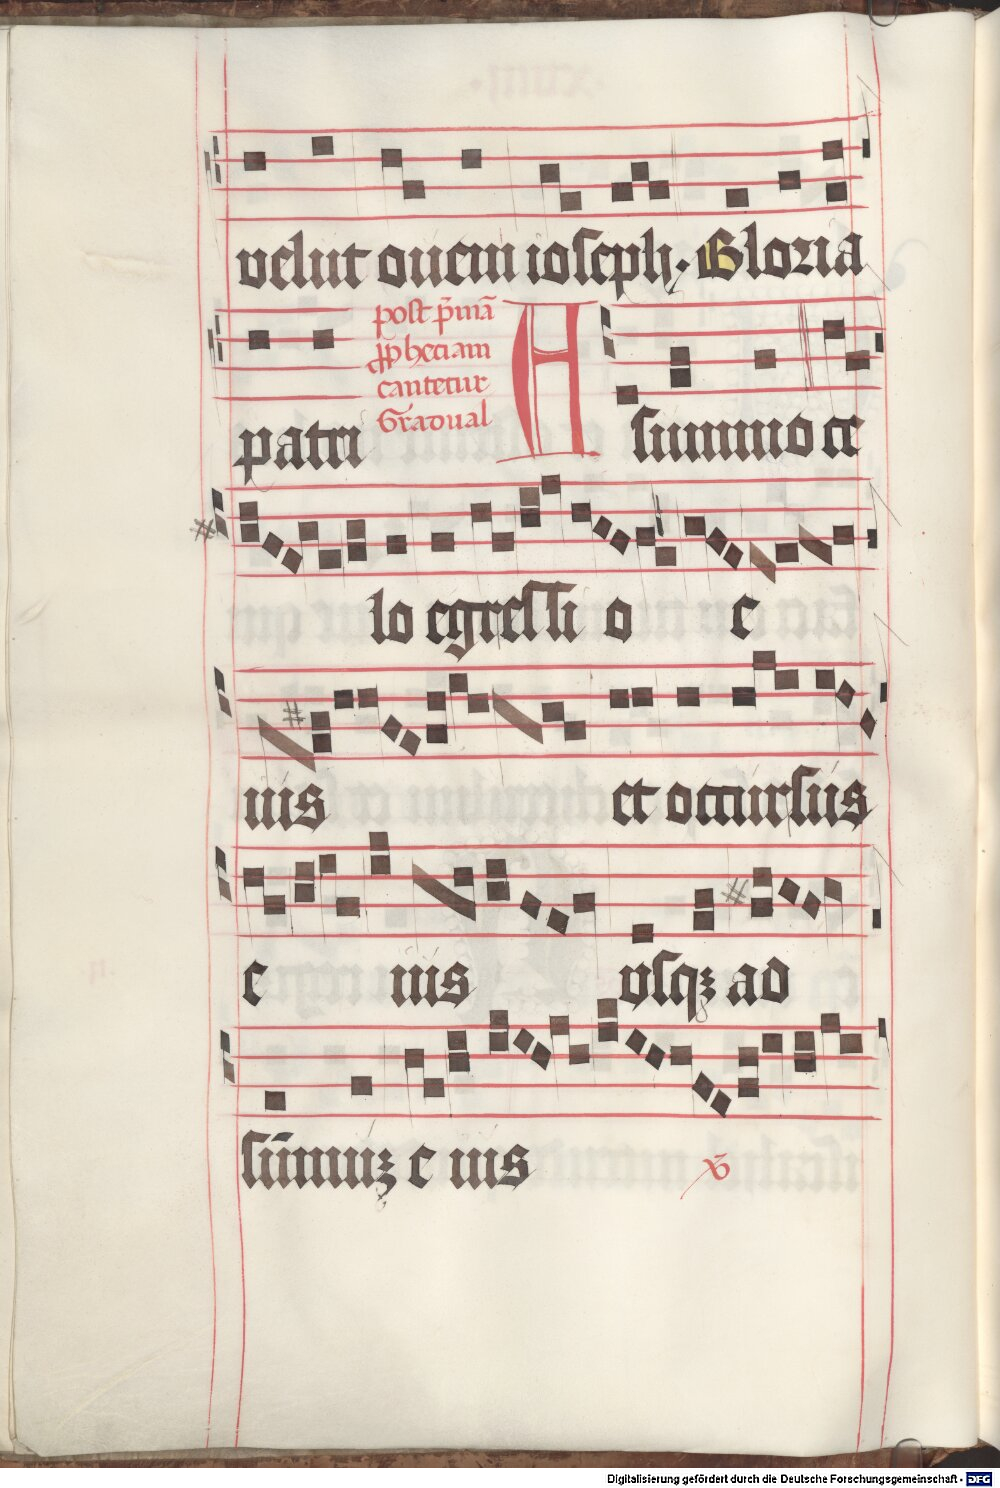 velut ouem ioseph. Gloria
post p̄mā
ꝓphetiam
cantetur
Gradual
patri
A summo ce
lo egressi o e
ius et occursus
e ius vsqꝫ ad
sūmuꝫ e ius
v̄
Digitalisierung gefördert durch die Deutsche Forschungsgemeinschaft - DFG